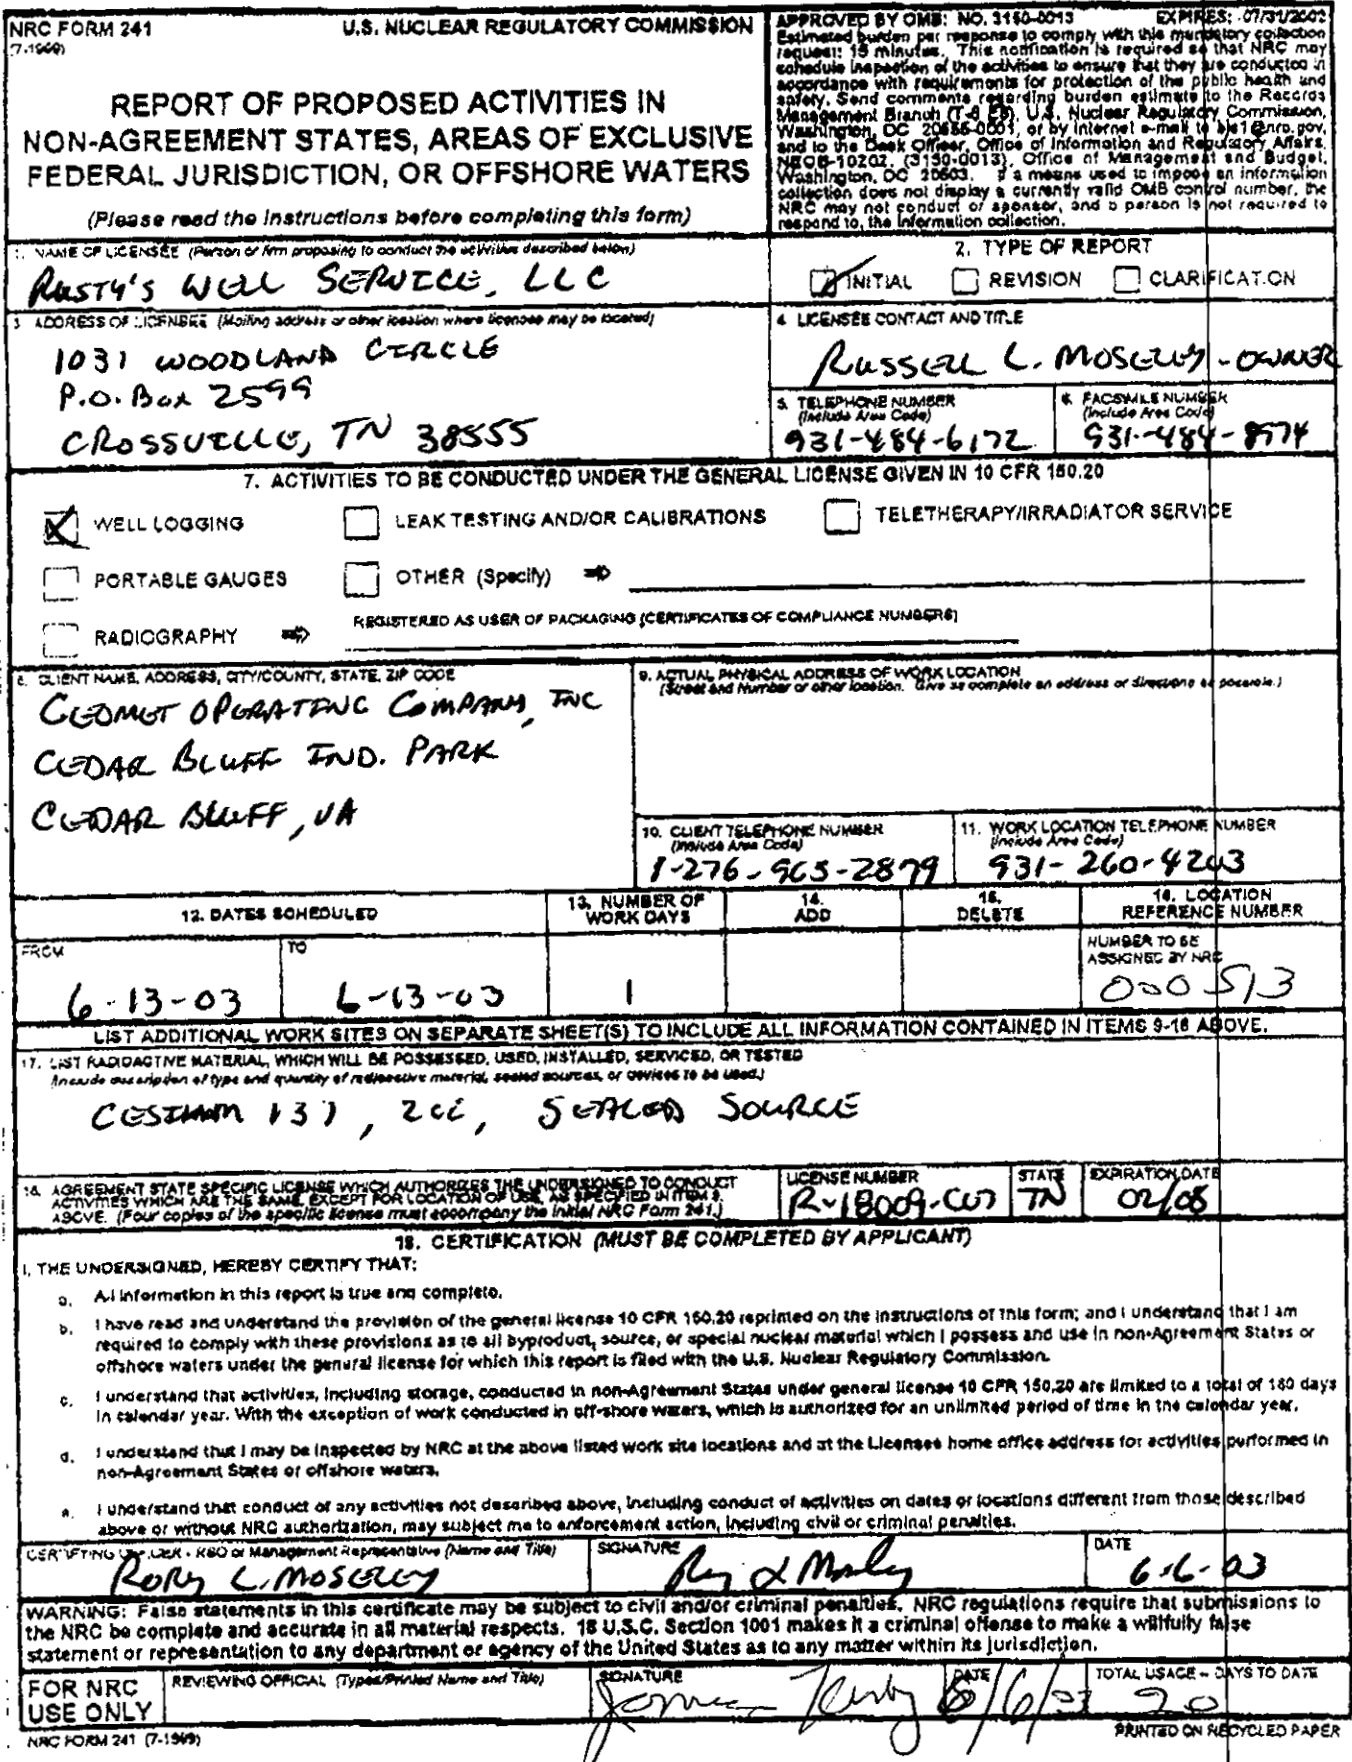 NRC FORM 241
(7-1999)
U.S. NUCLEAR REGULATORY COMMISSION
REPORT OF PROPOSED ACTIVITIES IN
NON-AGREEMENT STATES, AREAS OF EXCLUSIVE
FEDERAL JURISDICTION, OR OFFSHORE WATERS
(Please read the instructions before completing this form)
APPROVED BY OMB: NO. 3150-0013 EXPIRES: 07/31/2002
Estimated burden per response to comply with this mandatory collection
request: 15 minutes. This notification is required so that NRC may
schedule inspection of the activities to ensure that they are conducted in
accordance with requirements for protection of the public health and
safety. Send comments regarding burden estimate to the Records
Management Branch (T-6 E6), U.S. Nuclear Regulatory Commission,
Washington, DC 20555-0001, or by internet e-mail to bjs1@nrc.gov,
and to the Desk Officer, Office of Information and Regulatory Affairs,
NEOB-10202, (3150-0013), Office of Management and Budget,
Washington, DC 20503. If a means used to impose an information
collection does not display a currently valid OMB control number, the
NRC may not conduct or sponsor, and a person is not required to
respond to, the information collection.
1. NAME OF LICENSEE (Person or firm proposing to conduct the activities described below)
RUSTY'S WELL SERVICE, LLC
2. TYPE OF REPORT
INITIAL REVISION CLARIFICATION
3. ADDRESS OF LICENSEE (Mailing address or other location where licensee may be located)
1031 WOODLAND CIRCLE
P.O. Box 2599
CROSSVILLE, TN 38555
4. LICENSEE CONTACT AND TITLE
RUSSELL L. MOSELEY - OWNER
5. TELEPHONE NUMBER
(Include Area Code)
931-484-6172
6. FACSIMILE NUMBER
(Include Area Code)
931-484-8974
7. ACTIVITIES TO BE CONDUCTED UNDER THE GENERAL LICENSE GIVEN IN 10 CFR 150.20
WELL LOGGING LEAK TESTING AND/OR CALIBRATIONS TELETHERAPY/IRRADIATOR SERVICE
PORTABLE GAUGES OTHER (Specify) ⇨
RADIOGRAPHY ⇨ REGISTERED AS USER OF PACKAGING (CERTIFICATES OF COMPLIANCE NUMBERS)
8. CLIENT NAME, ADDRESS, CITY/COUNTY, STATE, ZIP CODE
GEOMET OPERATING COMPANY, INC
CEDAR BLUFF IND. PARK
CEDAR BLUFF, VA
9. ACTUAL PHYSICAL ADDRESS OF WORK LOCATION
(Street and Number or other location. Give as complete an address or directions as possible.)
10. CLIENT TELEPHONE NUMBER
(Include Area Code)
1-276-963-2879
11. WORK LOCATION TELEPHONE NUMBER
(Include Area Code)
931-260-4263
12. DATES SCHEDULED
13. NUMBER OF
WORK DAYS
14.
ADD
15.
DELETE
16. LOCATION
REFERENCE NUMBER
FROM
6-13-03
TO
6-13-03
1
NUMBER TO BE
ASSIGNED BY NRC
000513
LIST ADDITIONAL WORK SITES ON SEPARATE SHEET(S) TO INCLUDE ALL INFORMATION CONTAINED IN ITEMS 9-16 ABOVE.
17. LIST RADIOACTIVE MATERIAL, WHICH WILL BE POSSESSED, USED, INSTALLED, SERVICED, OR TESTED
(Include description of type and quantity of radioactive material, sealed sources, or devices to be used.)
CESIUM 137, 2Ci, SEALED SOURCE
18. AGREEMENT STATE SPECIFIC LICENSE WHICH AUTHORIZES THE UNDERSIGNED TO CONDUCT
ACTIVITIES WHICH ARE THE SAME, EXCEPT FOR LOCATION OF USE, AS SPECIFIED IN ITEM 9.
ABOVE. (Four copies of the specific license must accompany the initial NRC Form 241.)
LICENSE NUMBER
R-18009-C07
STATE
TN
EXPIRATION DATE
02/08
19. CERTIFICATION (MUST BE COMPLETED BY APPLICANT)
I, THE UNDERSIGNED, HEREBY CERTIFY THAT:
a. All information in this report is true and complete.
b. I have read and understand the provision of the general license 10 CFR 150.20 reprinted on the instructions of this form; and I understand that I am
required to comply with these provisions as to all byproduct, source, or special nuclear material which I possess and use in non-Agreement States or
offshore waters under the general license for which this report is filed with the U.S. Nuclear Regulatory Commission.
c. I understand that activities, including storage, conducted in non-Agreement States under general license 10 CFR 150.20 are limited to a total of 180 days
in calendar year. With the exception of work conducted in off-shore waters, which is authorized for an unlimited period of time in the calendar year.
d. I understand that I may be inspected by NRC at the above listed work site locations and at the Licensee home office address for activities performed in
non-Agreement States or offshore waters.
e. I understand that conduct of any activities not described above, including conduct of activities on dates or locations different from those described
above or without NRC authorization, may subject me to enforcement action, including civil or criminal penalties.
CERTIFYING OFFICER - RSO or Management Representative (Name and Title)
RORY L. MOSELEY
SIGNATURE
DATE
6-6-03
WARNING: False statements in this certificate may be subject to civil and/or criminal penalties. NRC regulations require that submissions to
the NRC be complete and accurate in all material respects. 18 U.S.C. Section 1001 makes it a criminal offense to make a willfully false
statement or representation to any department or agency of the United States as to any matter within its jurisdiction.
FOR NRC
USE ONLY
REVIEWING OFFICIAL (Typed/Printed Name and Title)
SIGNATURE
DATE
6/6/03
TOTAL USAGE - DAYS TO DATE
20
NRC FORM 241 (7-1999)
PRINTED ON RECYCLED PAPER